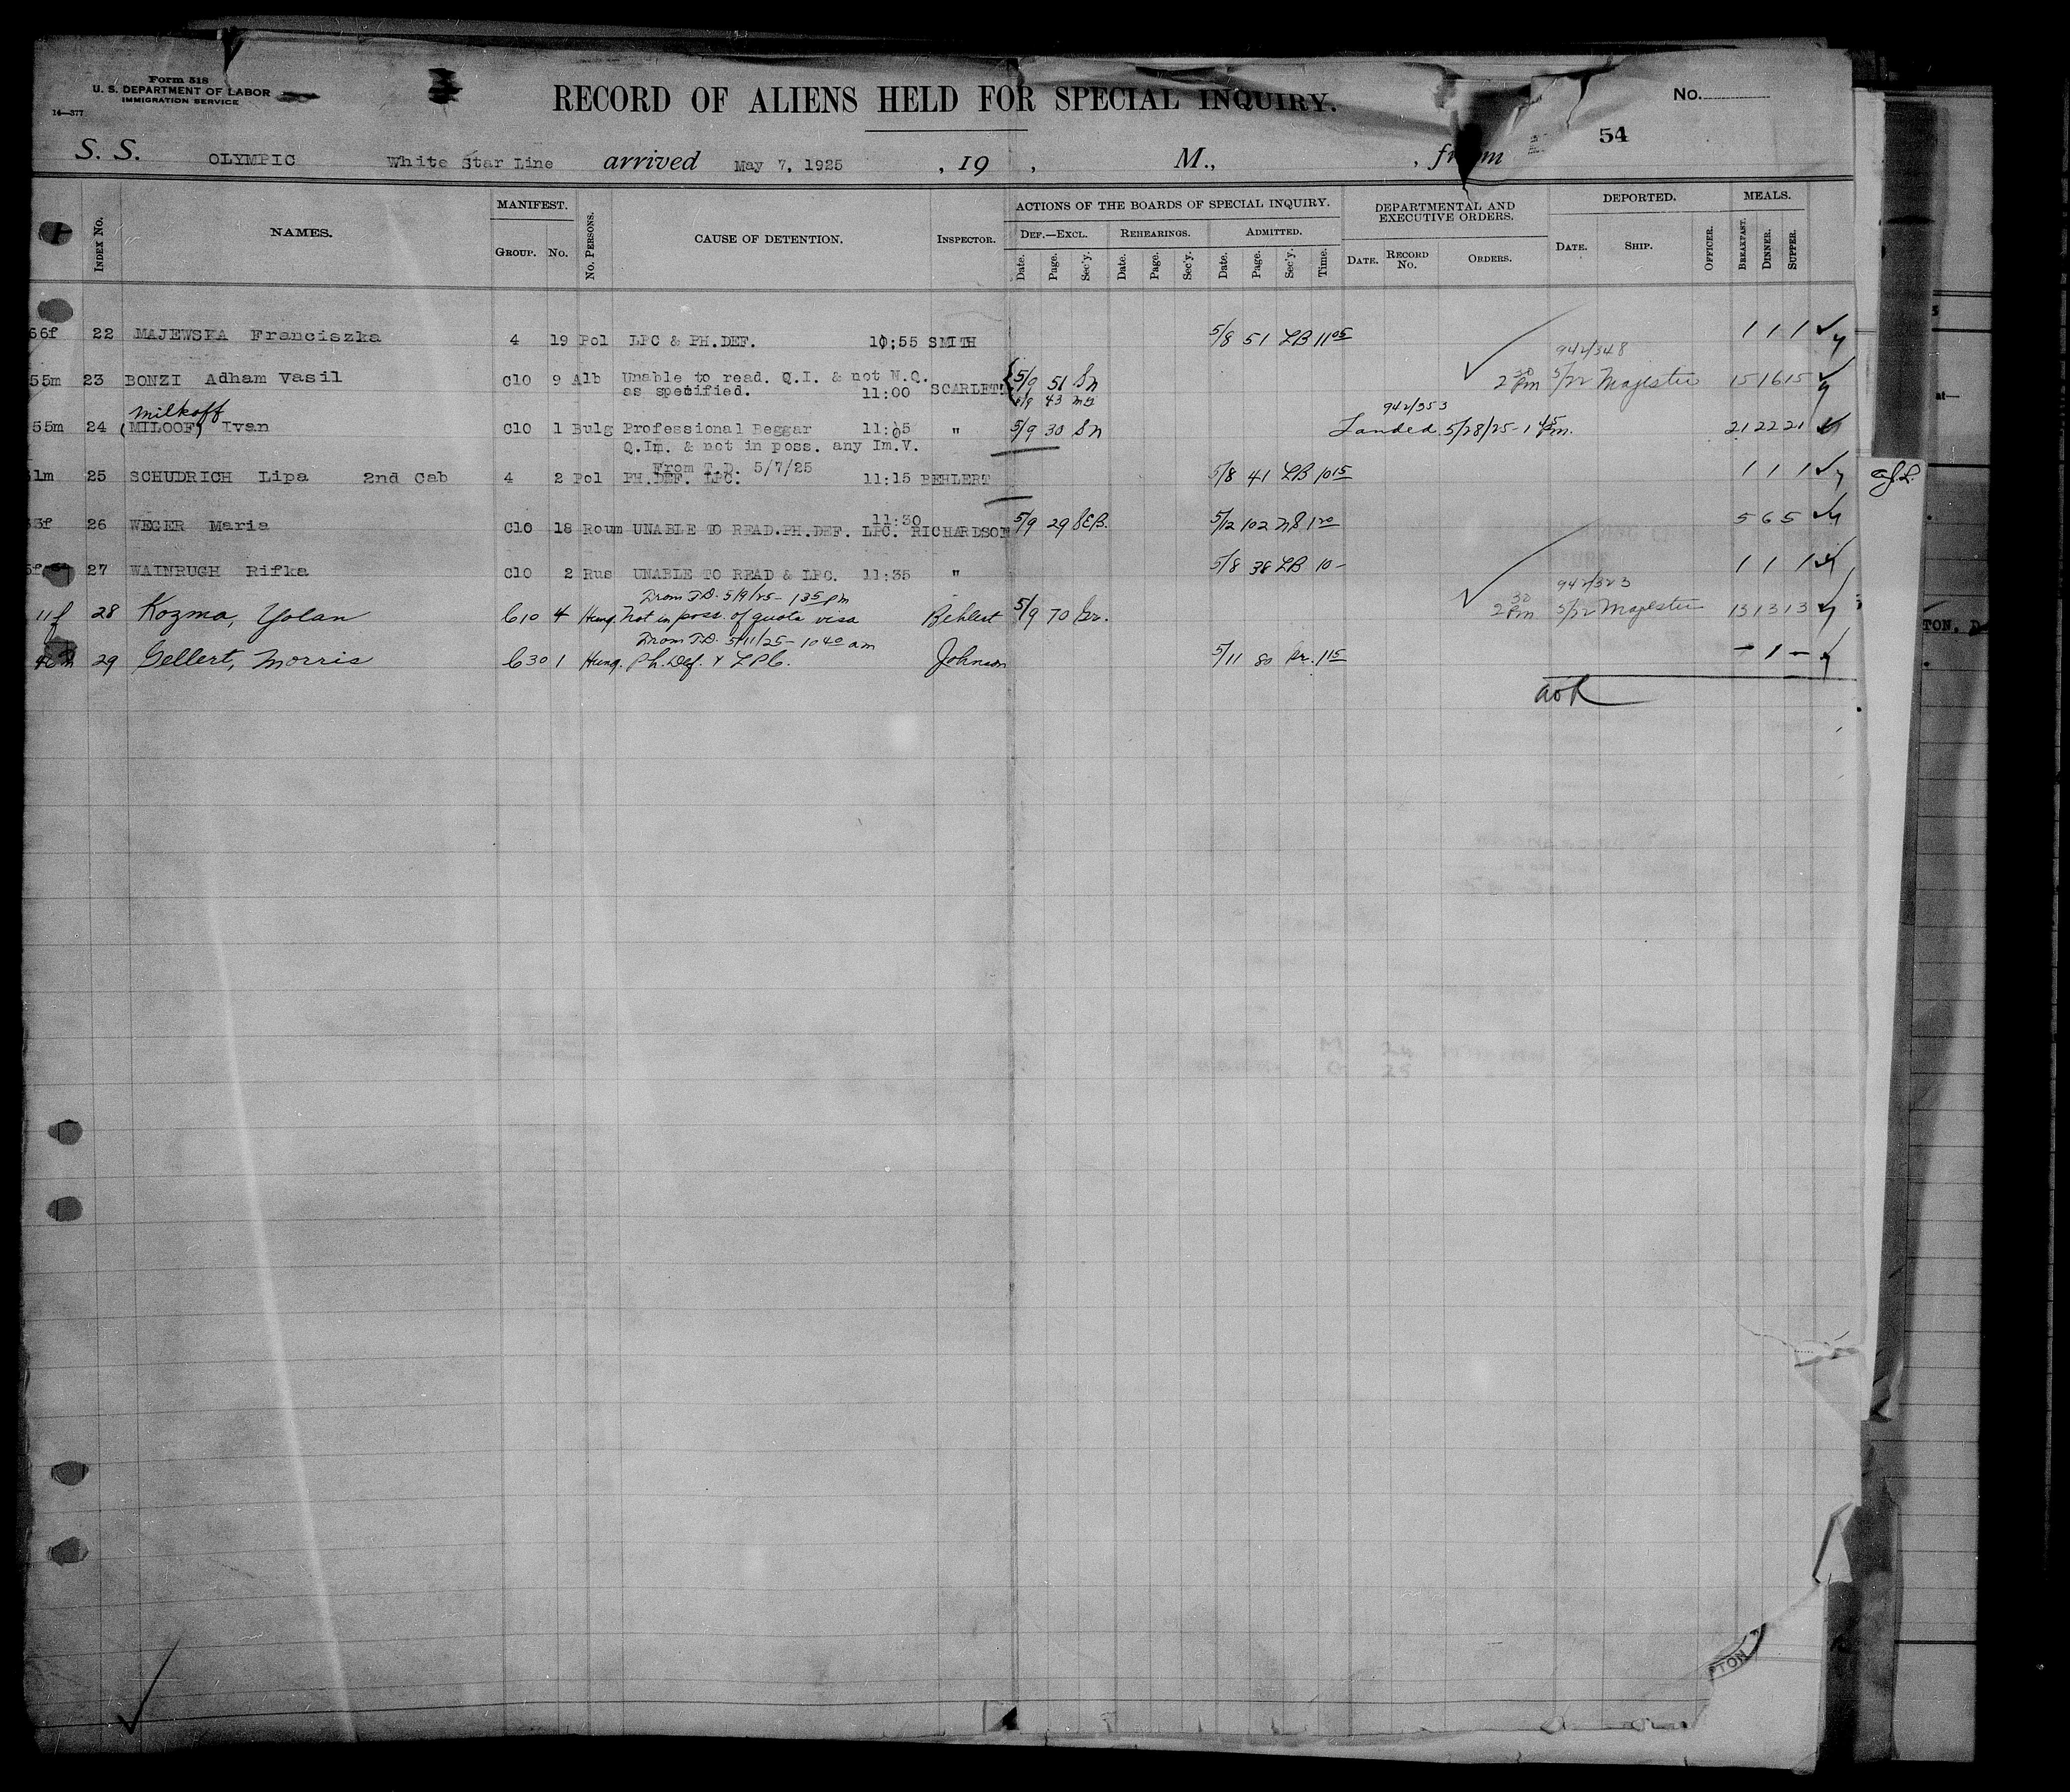 Form 518
U. S. DEPARTMENT OF LABOR
IMMIGRATION SERVICE
14—377
RECORD OF ALIENS HELD FOR SPECIAL INQUIRY.
No.
54
S. S. OLYMPIC White Star Line arrived May 7, 1925 , 19 , M., , from
Index No. NAMES. MANIFEST. Group. No. No. Persons. CAUSE OF DETENTION. Inspector. ACTIONS OF THE BOARDS OF SPECIAL INQUIRY. Def.—Excl. Date. Page. Sec'y. Rehearings. Date. Page. Sec'y. Admitted. Date. Page. Sec'y. Time. DEPARTMENTAL AND EXECUTIVE ORDERS. Date. Record No. Orders. DEPORTED. Date. Ship. Officer. MEALS. Breakfast. Dinner. Supper.
66f 22 MAJEWSKA Franciszka 4 19 Pol LPC & PH.DEF. 10:55 SMITH 5/8 51 LB 11 05 1 1 1
942/348
55m 23 BONZI Adham Vasil C10 9 Alb Unable to read. Q.I. & not N.Q. 5/9 51 Sn 2 30 Pm Majestic 15 16 15
as specified. 11:00 SCARLETT 43
Milkoff 942/353
55m 24 (MILOOF) Ivan C10 1 Bulg Professional Beggar 11:05 " 5/9 30 Sn Landed 5/28/25 - 1 45 Pm. 21 22 21
Q.Im. & not in poss. any Im.V.
From T.D. 5/7/25
1m 25 SCHUDRICH Lipa 2nd Cab 4 2 Pol PH.DEF. LPC. 11:15 BEHLERT 5/8 41 LB 10 15 1 1 1
11:30
3f 26 WEGER Maria C10 18 Roum UNABLE TO READ.PH.DEF. LPC. RICHARDSON 5/9 29 SEB. 5/12 102 1 20 5 6 5
27 WAINRUGH Rifka C10 2 Rus UNABLE TO READ & LPC. 11:35 " 5/8 38 LB 10 - 1 1 1
From T.D. 5/9/25 - 1 35 pm 942/323
11f 28 Kozma, Yolan C10 4 Hung. Not in poss. of quota visa Behlert 5/9 70 Gr. 2 30 Pm Majestic 13 13 13
From T.D. 5/11/25 - 10 40 am
29 Gellert, Morris C30 1 Hung. Ph. Def. & LPC. Johnson 5/11 80 1 15 - 1 -
aok
TON, D
PTON